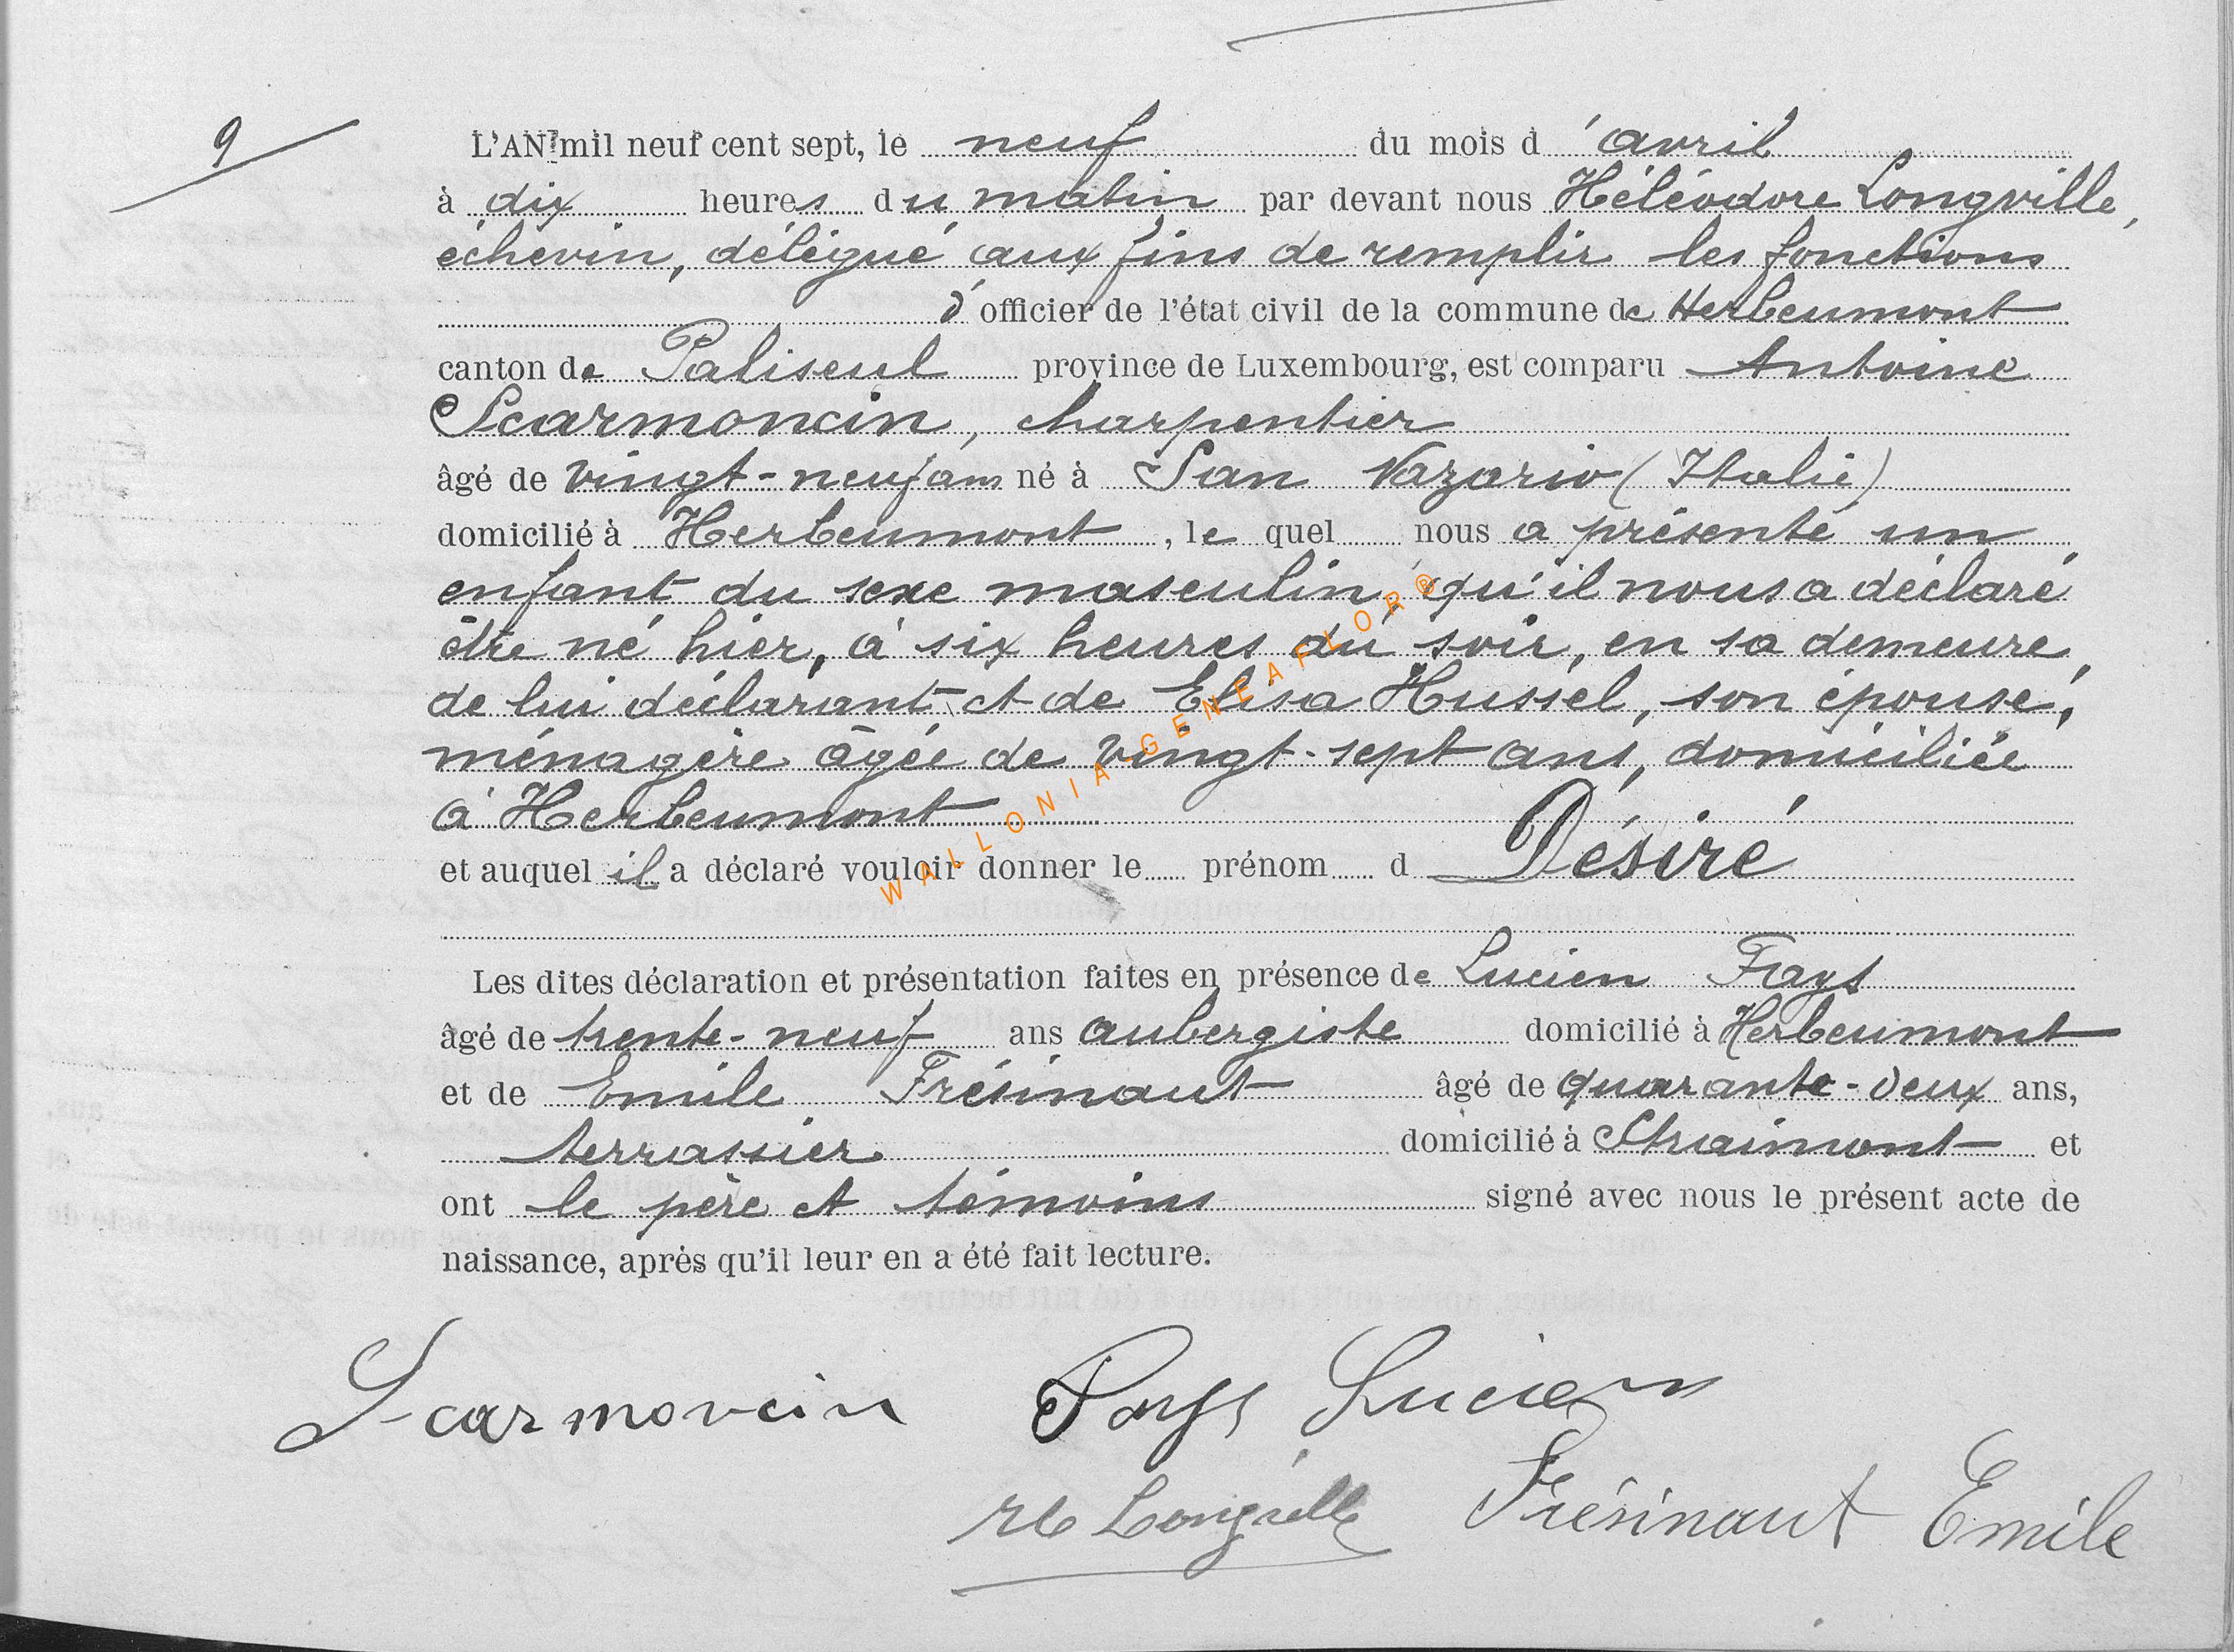 9
L'AN mil neuf cent sept, le neuf du mois d'avril
à dix heures du matin par devant nous Héléodore Longville,
échevin, délégué aux fins de remplir les fonctions
d'officier de l'état civil de la commune de Herbeumont
canton de Paliseul province de Luxembourg, est comparu Antoine
Scarmoncin, charpentier
âgé de vingt-neuf ans né à San Nazario (Italie)
domicilié à Herbeumont, le quel nous a présenté un
enfant du sexe masculin, qu'il nous a déclaré
être né hier, à six heures du soir, en sa demeure,
de lui déclarant et de Elisa Hussel, son épouse,
ménagère âgée de vingt-sept ans, domiciliée
à Herbeumont
et auquel il a déclaré vouloir donner le prénom d Désiré
Les dites déclaration et présentation faites en présence de Lucien Fays
âgé de trente-neuf ans aubergiste domicilié à Herbeumont
et de Emile Frésinaut âgé de quarante-deux ans,
terrassier domicilié à Straimont et
ont le père et témoins signé avec nous le présent acte de
naissance, après qu'il leur en a été fait lecture.
Scarmoncin Fays Lucien
H Longville Frésinaut Emile
WALLONIA GENEAFLOR®